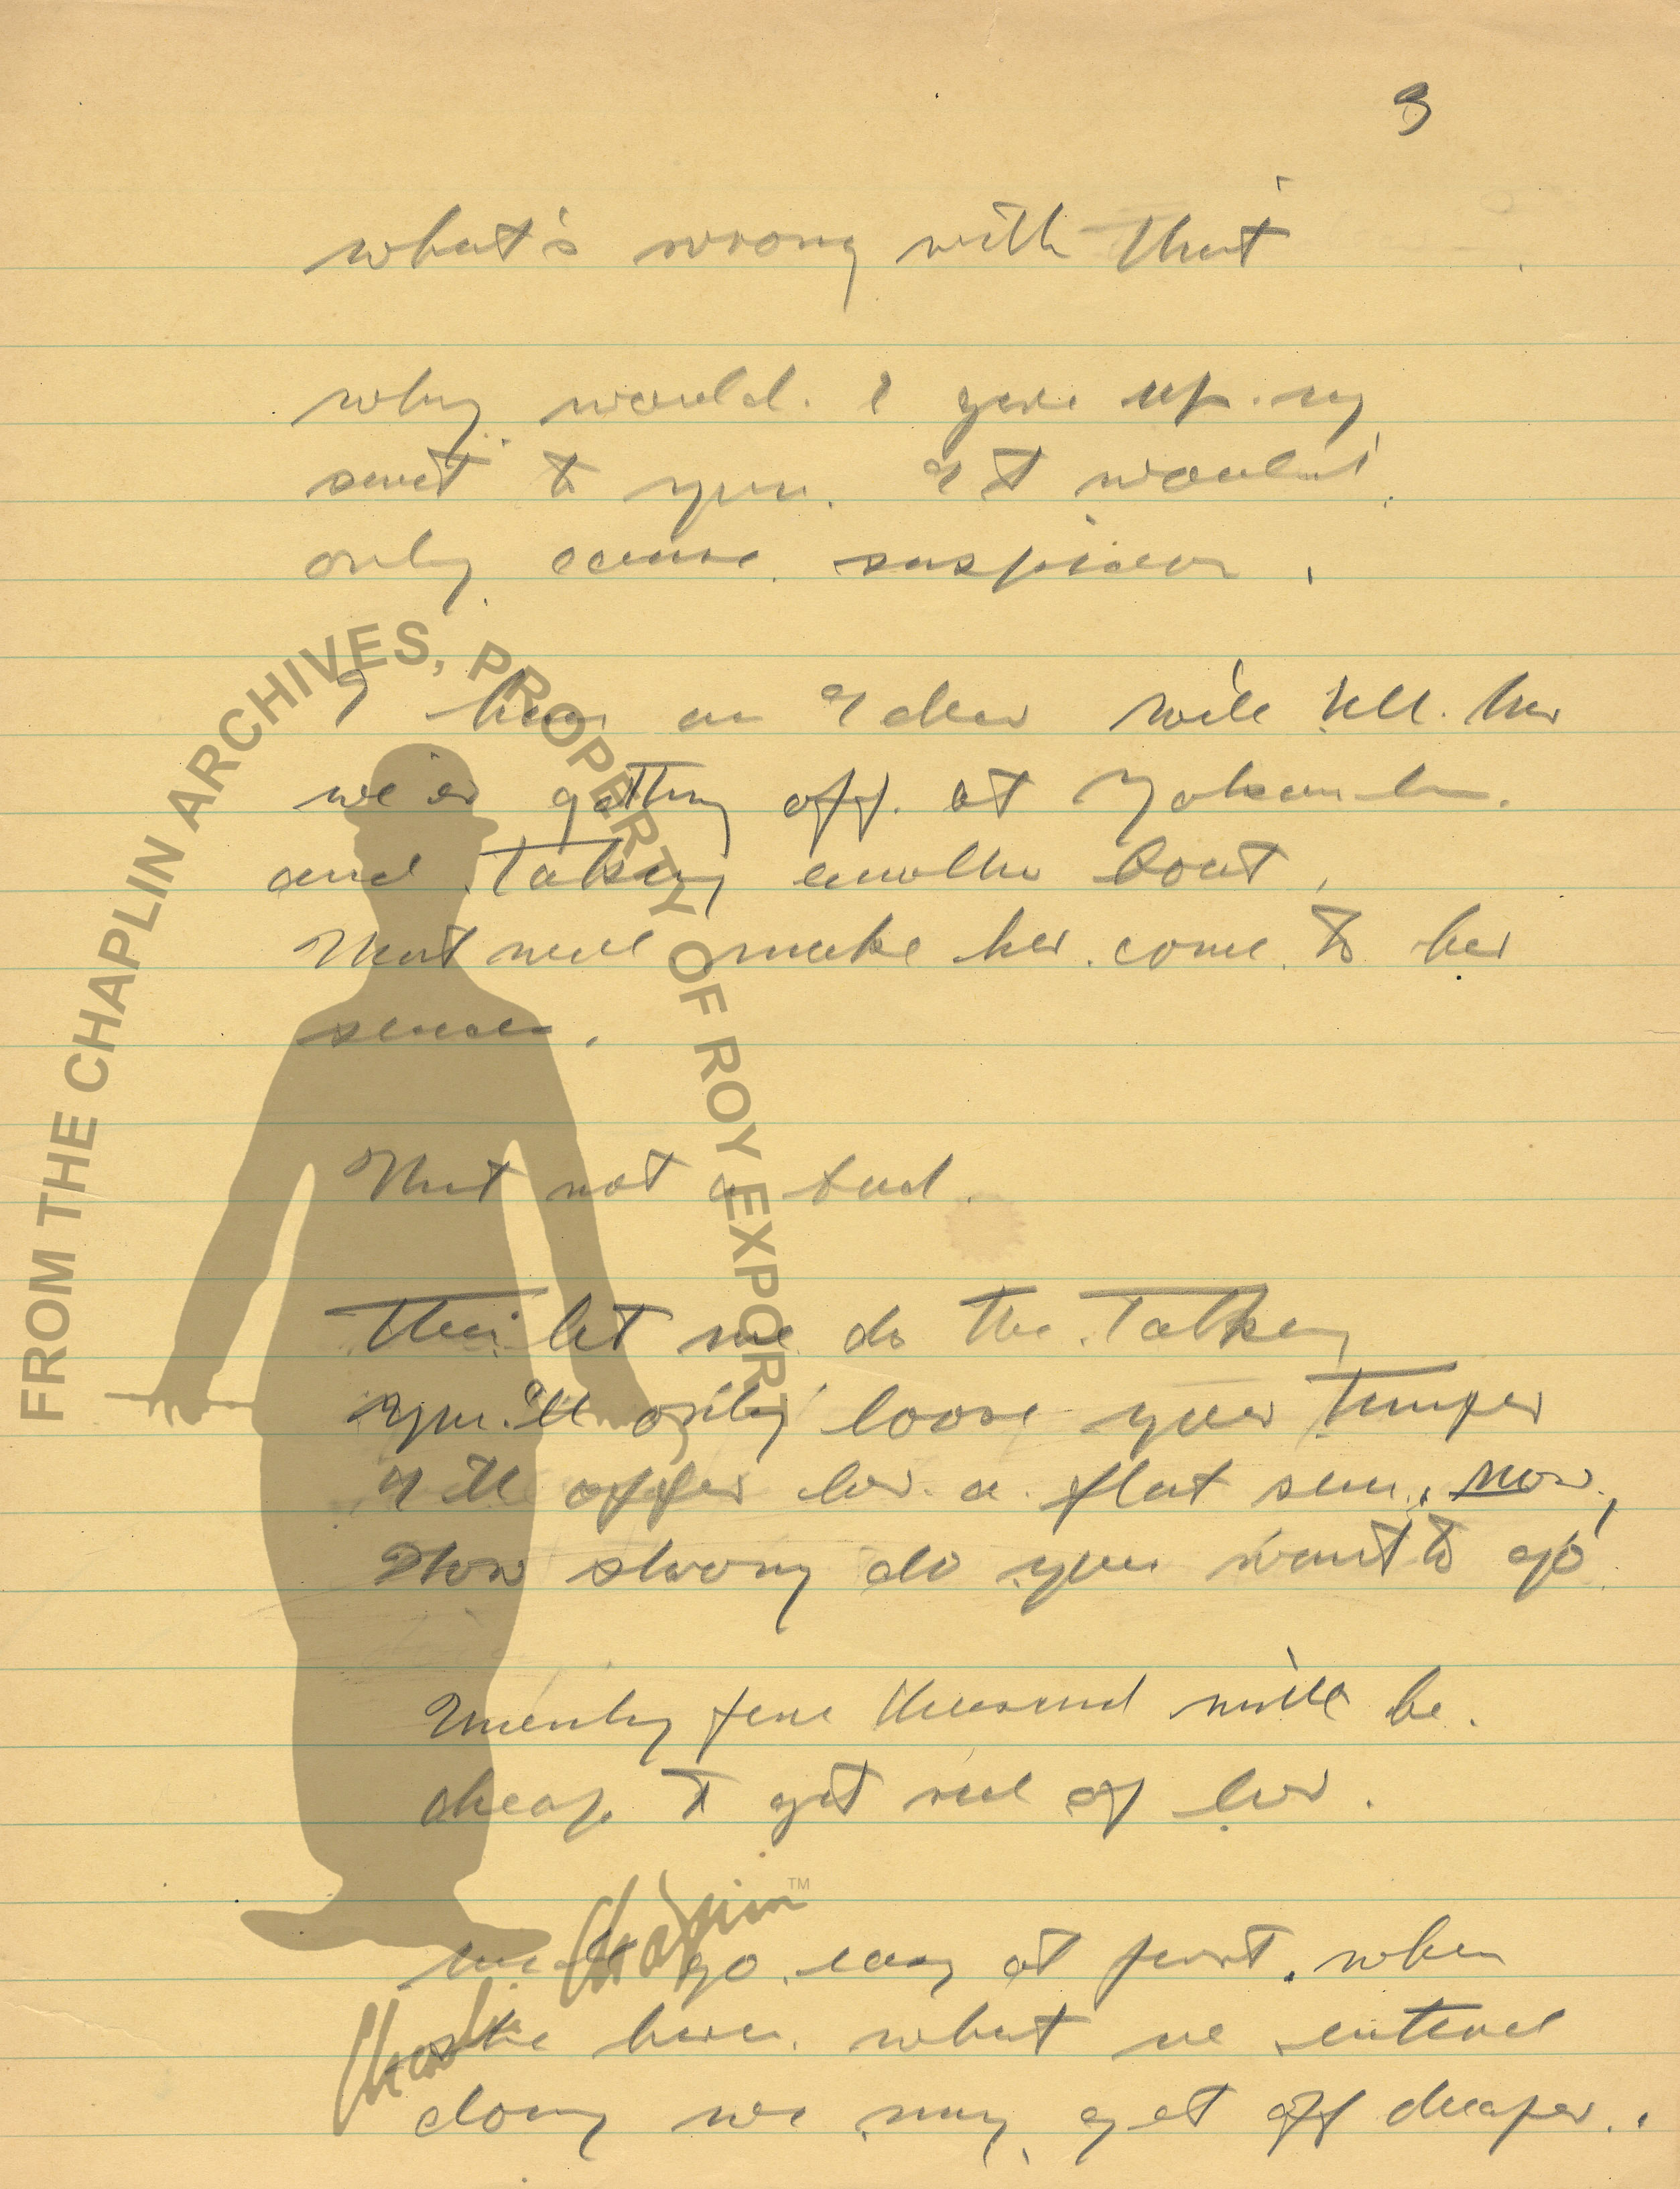 3
what's wrong with that
why would. I give up. my
suit to you. It would
only cause suspicion.
I have an Idea we'll tell. her
we'er getting off. at Yokohama.
and taking another boat,
that will make her. come. to her
senses.
That not a bad.
Then let me do the talking
you.'ll only loose your temper
I'll offer her a. flat sum, now,
How strong do you want to go
Twenty five thousand will be.
cheap to get rid of her.
we'll go. easy at first. when
she hears. what we intend
doing we may get off cheaper..
FROM THE CHAPLIN ARCHIVES, PROPERTY OF ROY EXPORT
Charlie Chaplin TM